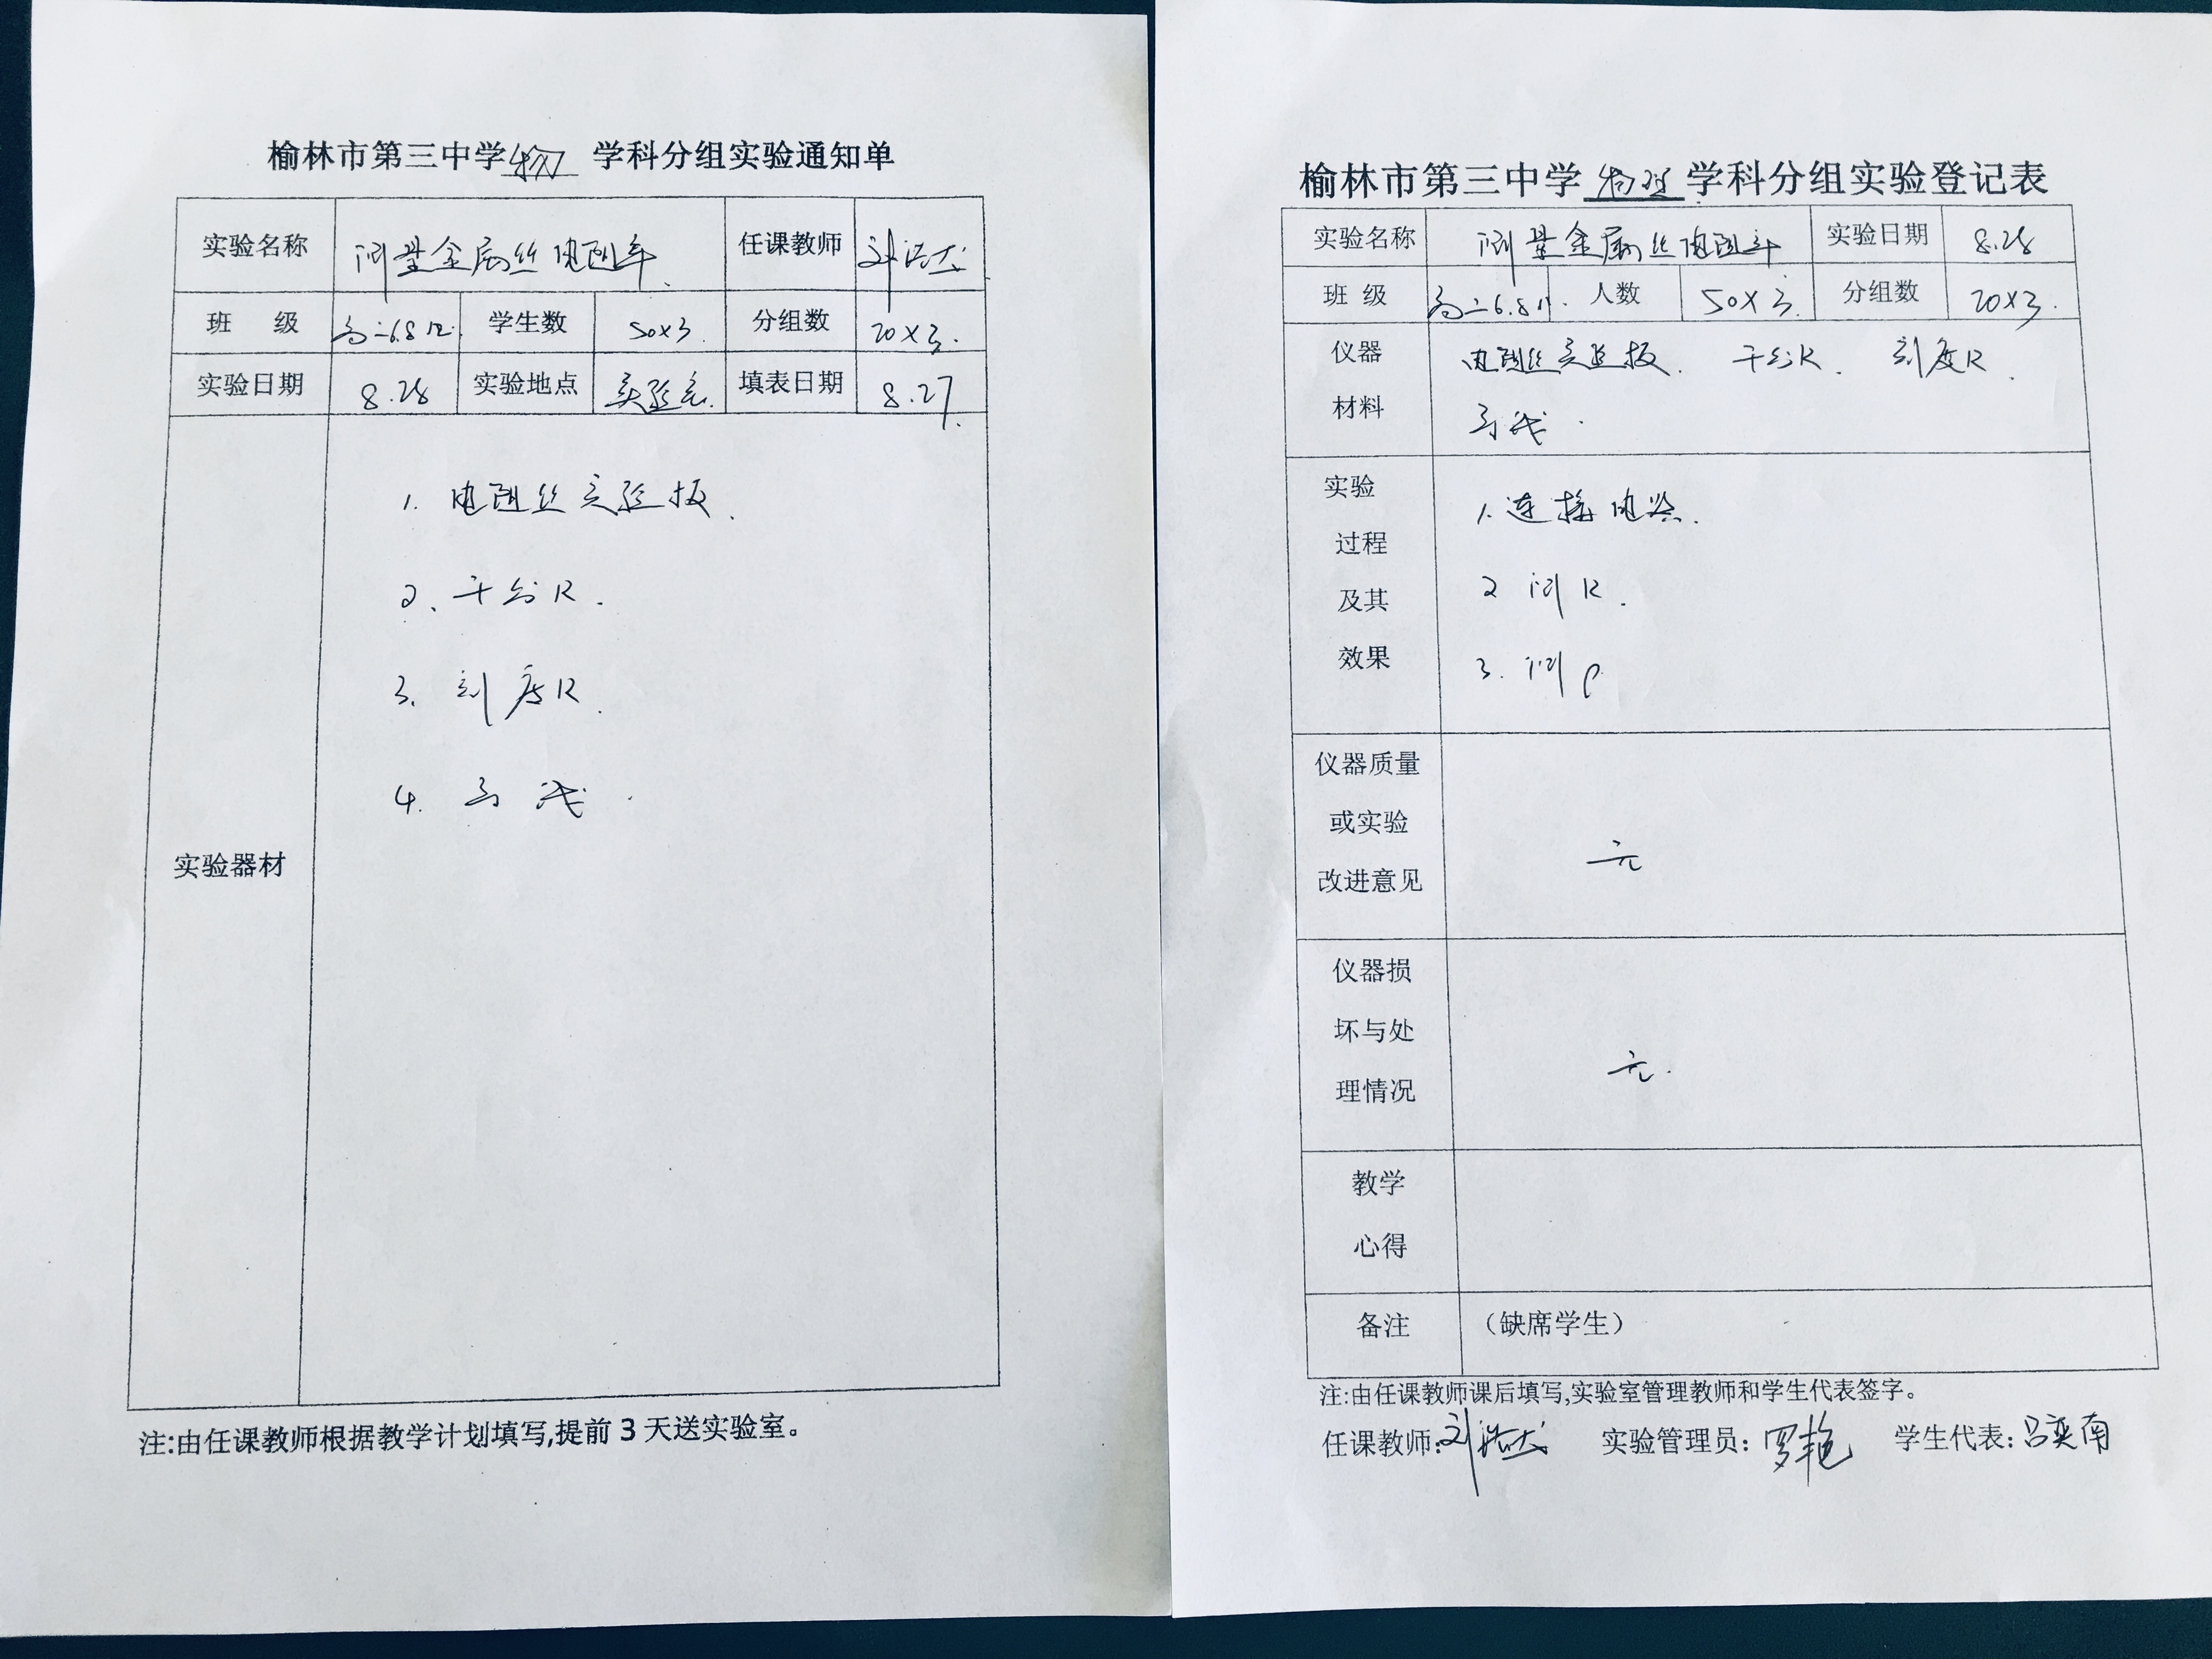 榆林市第三中学物 学科分组实验通知单
实验名称 测量金属丝电阻率 任课教师
班 级 高二6.8.12. 学生数 50×3. 分组数 20×3.
实验日期 8.28 实验地点 实验室. 填表日期 8.27.
实验器材
1. 电阻丝实验板.
2、千分尺.
3. 刻度尺.
4. 导线.
注:由任课教师根据教学计划填写,提前3天送实验室。
榆林市第三中学物理学科分组实验登记表
实验名称 测量金属丝电阻率 实验日期 8.28
班 级 高二6.8 人数 50×3. 分组数 20×3.
仪器
材料
电阻丝实验板. 千分尺. 刻度尺.
导线.
实验
过程
及其
效果
1.连接电路.
2 测R.
3. 测ρ
仪器质量
或实验
改进意见
无
仪器损
坏与处
理情况
无.
教学
心得
备注 (缺席学生)
注:由任课教师课后填写,实验室管理教师和学生代表签字。
任课教师: 实验管理员:罗艳 学生代表:吕奕南